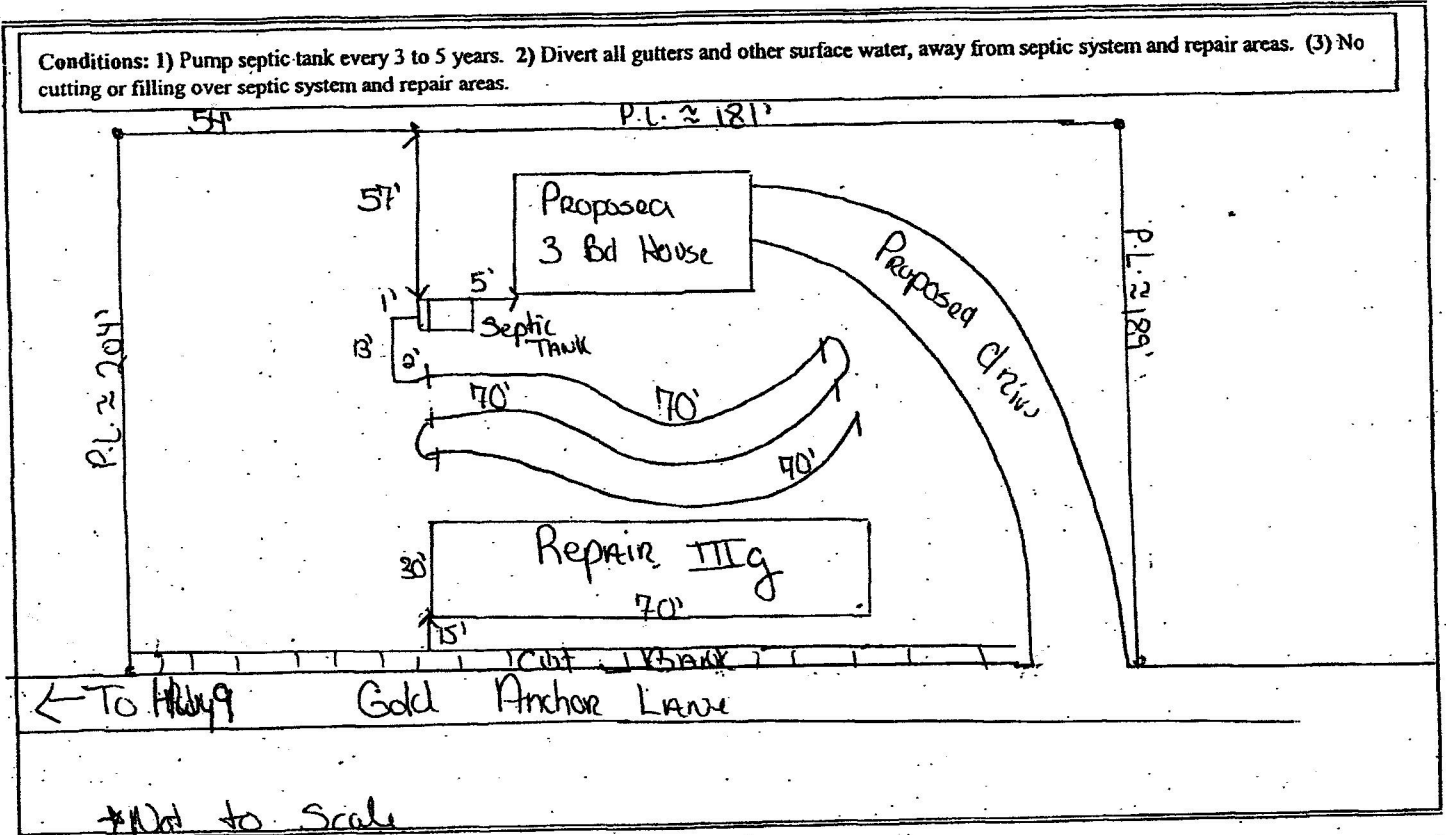 Conditions: 1) Pump septic tank every 3 to 5 years. 2) Divert all gutters and other surface water, away from septic system and repair areas. (3) No
cutting or filling over septic system and repair areas.
54' P.L. ≈ 181'
57'
Proposed
3 Bd House
Proposed drive
P.L. ≈ 189'
P.L. ≈ 204'
5'
1'
Septic
TANK
13'
2'
70' 70'
70'
30'
Repair IIIg
70'
15'
Cut BANK
← To Hwy 9 Gold Anchor Lane
*Not to Scale